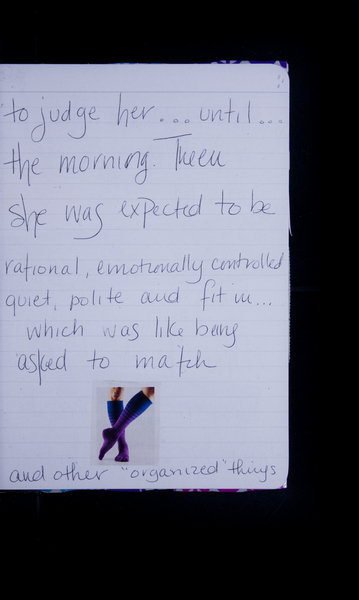 to judge her... until...
the morning. Then
she was expected to be
rational, emotionally controlled
quiet, polite and fit in...
which was like being
asked to match
and other "organized" things